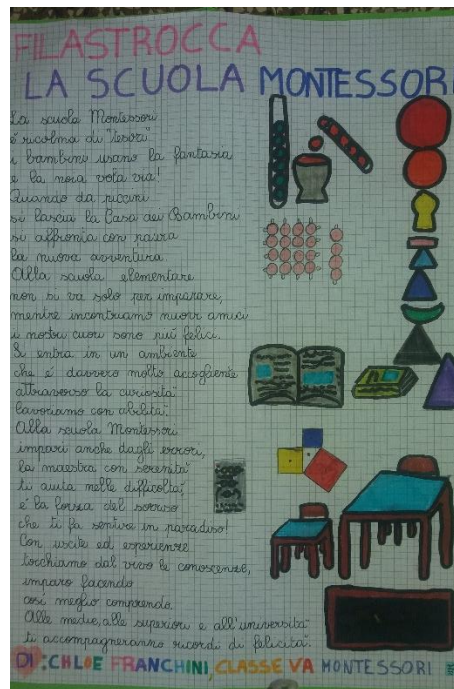 FILASTROCCA
LA SCUOLA MONTESSORI
La scuola Montessori
è ricolma di "tesori":
i bambini usano la fantasia
e la noia vola via!
Quando da piccini
si lascia la Casa dei Bambini
si affronta con paura
la nuova avventura.
Alla scuola elementare
non si va solo per imparare,
mentre incontriamo nuovi amici
i nostri cuori sono più felici.
Si entra in un ambiente
che è davvero molto accogliente
attraverso la curiosità
lavoriamo con abilità.
Alla scuola Montessori
impari anche dagli errori,
la maestra con serenità
ti aiuta nelle difficoltà,
è la forza del sorriso
che ti fa sentire in paradiso!
Con uscite ed esperienze
tocchiamo dal vivo le conoscenze,
imparo facendo
così meglio comprendo.
Alle medie, alle superiori e all'università
ti accompagneranno ricordi di felicità.
DI: CHLOE FRANCHINI, CLASSE VA MONTESSORI